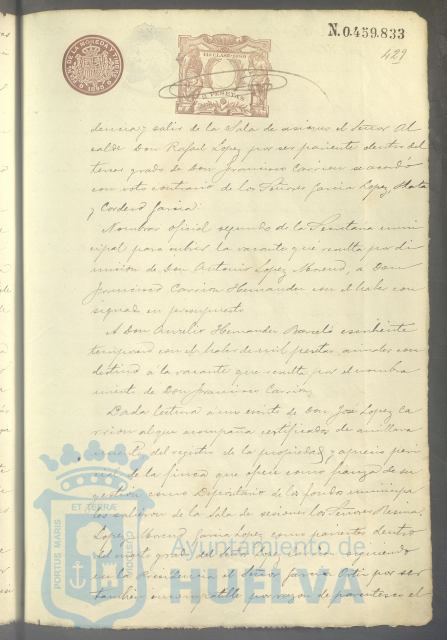 N.0.459.833
429
dencia, y salir de la Sala de sesiones el Señor Al
calde Don Rafael Lopez por ser pariente dentro del
tercer grado de Don Francisco Carrion se acordó
con voto contrario de los Señores Garcia Lopez, Mata
y Cordero Garcia:
Nombrar oficial segundo de la Secretaria muni
cipal para cubrir la vacante que resulta por di
mision de Don Antonio Lopez Moreno, a Don
Francisco Carrion Hernandez con el haber con
signado en presupuesto
A Don Aurelio Hernandez Barceló escribiente
temporero con el haber de mil pesetas anuales con
destino á la vacante que resulta por el nombra
miento de Don Francisco Carrion,
Dada lectura a un escrito de Don José Lopez Ca
rrion al que acompaña certificados de amillara
miento, del registro de la propiedad y aprecio peri
cial de la finca que ofrece como fianza de su
gestion como Depositario de los fondos municipa
les salieron de la Sala de sesiones los Señores
Lopez Garcia Lopez como parientes dentro
del grado
en la Presidencia el Señor Garcia Ortiz por ser
tambien incompatible por razon de parentesco el
PORTUS MARIS ET TERRÆ CUSTODIA
Ayuntamiento de
HUELVA